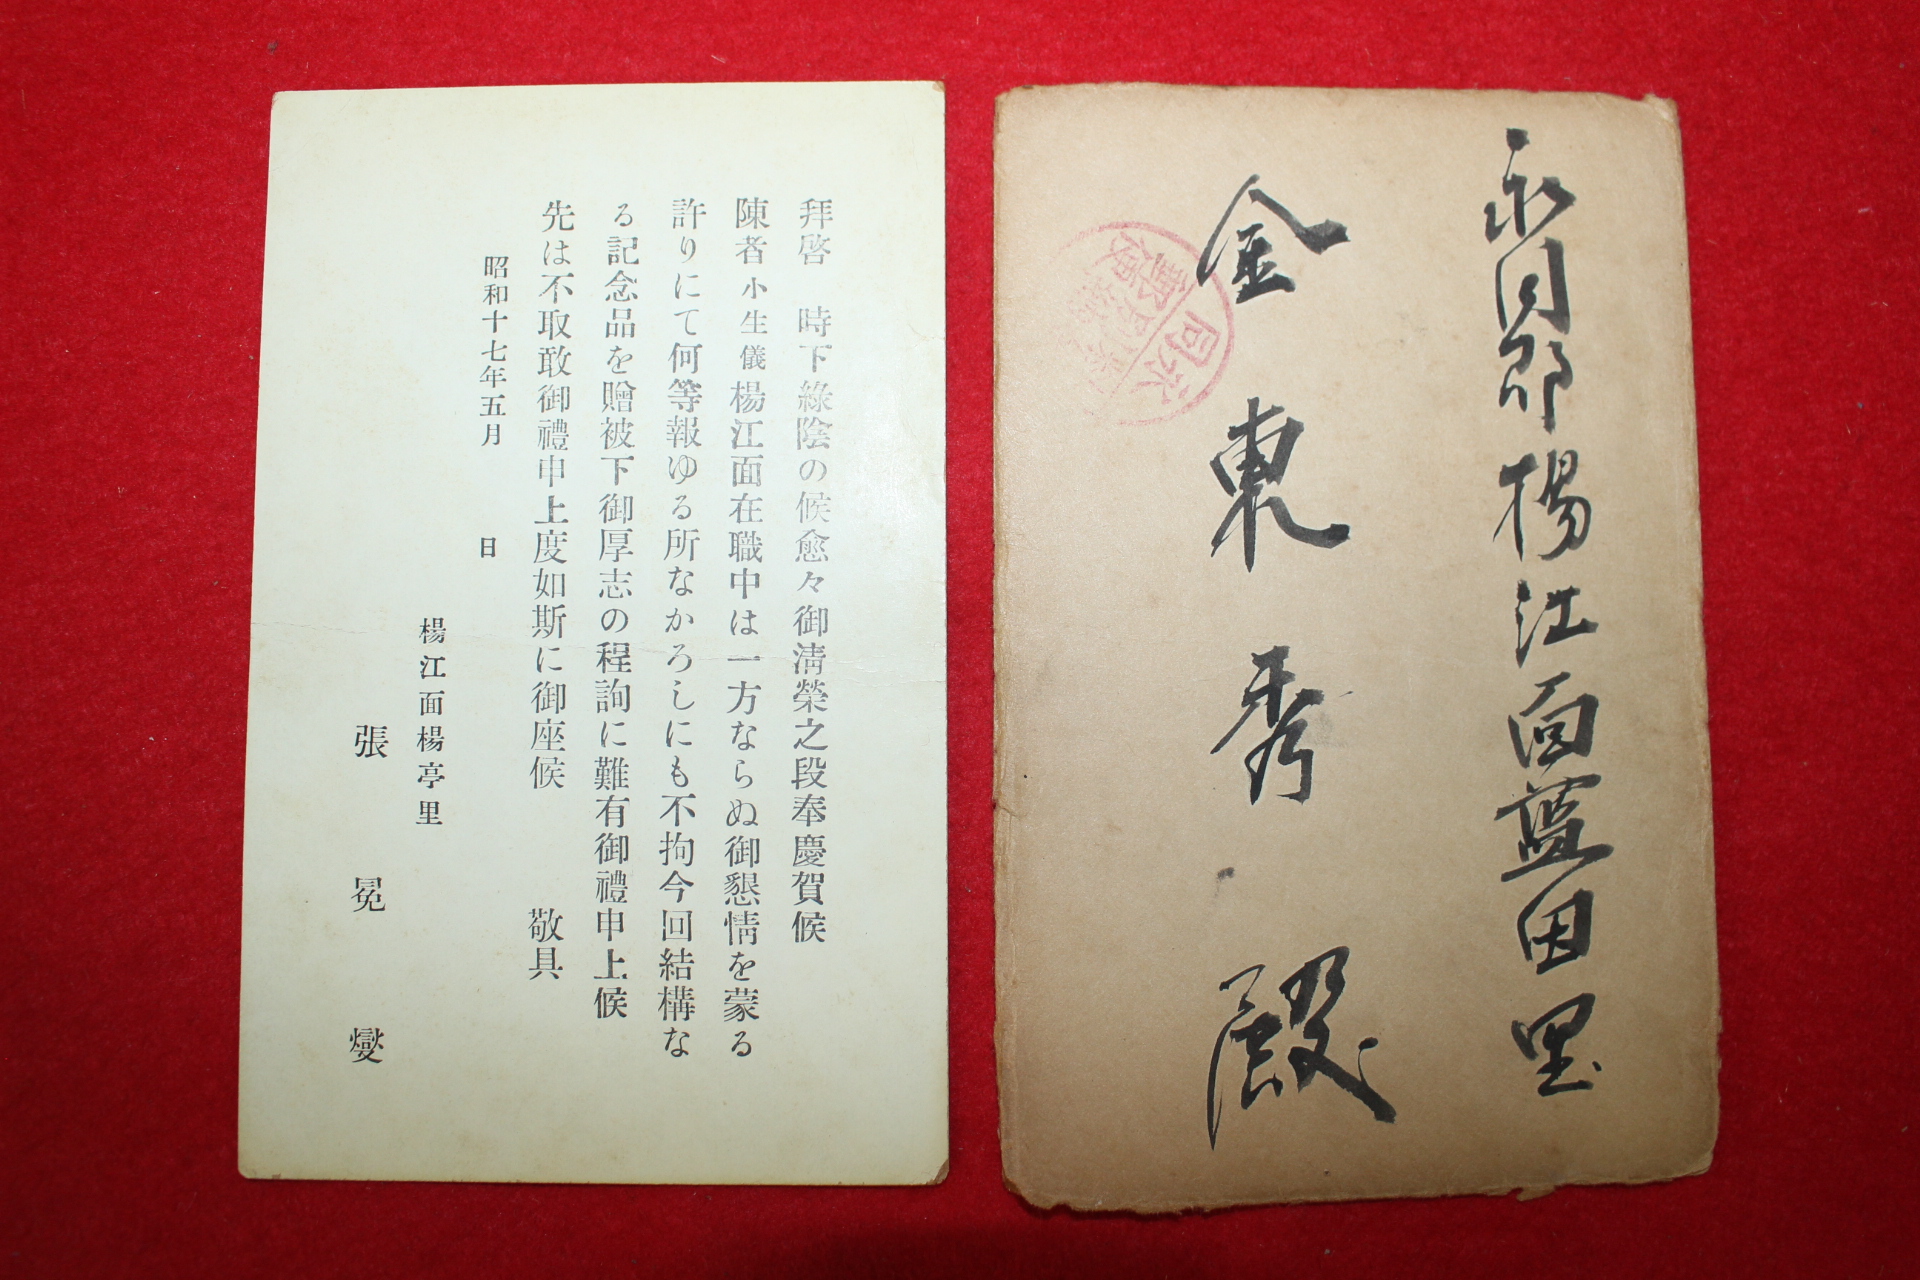 拜啓　時下綠陰の候愈々御淸榮之段奉慶賀候
陳者小生儀楊江面在職中は一方ならぬ御懇情を蒙る
許りにて何等報ゆる所なかろしにも不拘今回結構な
る記念品を贈被下御厚志の程詢に難有御禮申上候
先は不取敢御禮申上度如斯に御座候　敬具
昭和十七年五月　日
楊江面楊亭里
張　冕　燮
永同郡楊江面藍田里
金東秀殿
永同